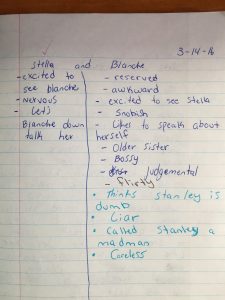 3-14-16
Stella and Blanche
- excited to
see blanche
- nervous
- Let's
Blanche down
talk her
- reserved
- awkward
- excited to see Stella
- Snobish
- Likes to speak about
herself
- Older sister
- Bossy
- Judgemental
- flirty
• Thinks stanley is
dumb
• Liar
• Called Stanley a
madman
• Careless